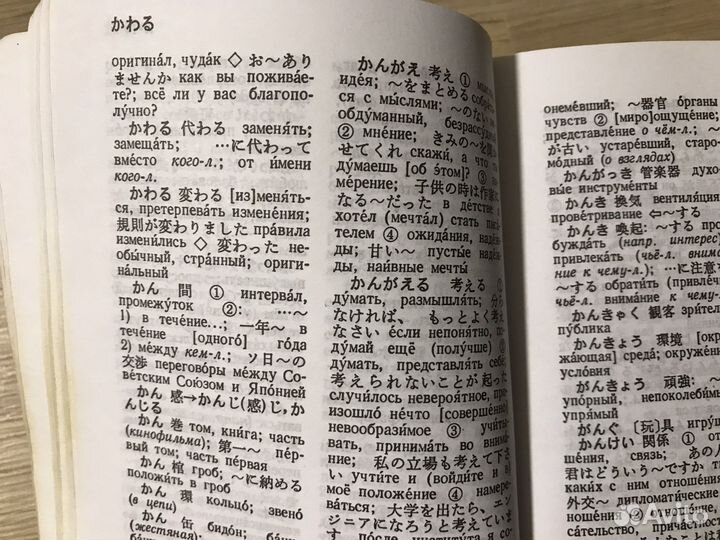 かわる
оригина́л, чуда́к ◇ お〜あり
ませんか как вы пожива́е-
те?; всё ли у вас благопо-
лу́чно?
かわる 代わる заменя́ть;
замеща́ть; …に代わって
вме́сто кого-л.; от и́мени
кого-л.
かわる 変わる [из]меня́ть-
ся, претерпева́ть измене́ния;
規則が変わりました пра́вила
измени́лись ◇ 変わった не-
обы́чный, стра́нный; ориги-
на́льный
かん 間 ① интерва́л,
промежу́ток ②: …〜
1) в тече́ние…; 一年〜 в
тече́ние [одного́] го́да
2) ме́жду кем-л.; ソ日〜の
交渉 перегово́ры ме́жду Сове́-
тским Сою́зом и Япо́нией
かん 感→かんじ(感)じ, か-
んじる
かん 巻 том, кни́га; часть
(кинофильма); 第一〜 пе́р-
вый том; часть пе́рвая
かん 棺 гроб; 〜に納める
положи́ть в гроб
かん 環 кольцо́, звено́
(в цепи)
かん 缶 бидо́н;
(жестяная);
かんがえ 考え ①
иде́я; 〜をまとめる
ся с мы́слями; 〜のない
обду́манный,
② мне́ние; きみの〜を
せてくれ скажи́, а что
ду́маешь [об э́том]? ③
ме́рение; 子供の時は作家に
なる〜だった в де́тстве
хоте́л (мечта́л) стать
телем ④ ожида́ния,
ды; 甘い〜 пусты́е наде́ж-
ды, наи́вные мечты́
かんがえる 考える ①
ду́мать, размышля́ть;
なければ、もっとよく考え
なさい е́сли непоня́тно, по-
ду́май ещё (полу́чше) ②
ду́мать, представля́ть себе́;
考えられないことが起った
случи́лось невероя́тное, про-
изошло́ не́что [соверше́нно]
невообрази́мое ③ учи́ты-
вать, принима́ть во внима́-
ние; 私の立場も考えて下さ
い учти́те и (войди́те и в)
моё положе́ние ④ намере-
ва́ться; 大学を出たら、エン
ジニアになろうと考えています
по́сле институ́та я со-
онеме́вший; 〜器官 о́рганы
чувств ② [миро]ощуще́ние;
представле́ние о чём-л.;
が古い устаре́вший, старо-
мо́дный (о взглядах)
かんがっき 管楽器 духо-
вы́е инструме́нты
かんき 換気 вентиля́ция
прове́тривание ⇦〜する
かんき 喚起: 〜する про-
бужда́ть (напр. интерес)
привлека́ть (чьё-л. внима-
ние к чему-л.); …に注意を
〜する обрати́ть (привле́чь
чьё-л. внима́ние к чему-л.
かんきゃく 観客 зри́тели
пу́блика
かんきょう 環境 [окру-
жа́ющая] среда́; окруже́ние
усло́вия
がんきょう 頑強: 〜な
упо́рный, непоколеби́мый
упря́мый
がんぐ 〔玩〕具 игру́ш
かんけい 関係 ① от
ноше́ния, связь; あの人と
君はどういう〜ですか в
каки́х с ним отноше́ниях
外交〜 дипломати́ческие
отноше́ния ②
са́тельство, прича́стность
Avito